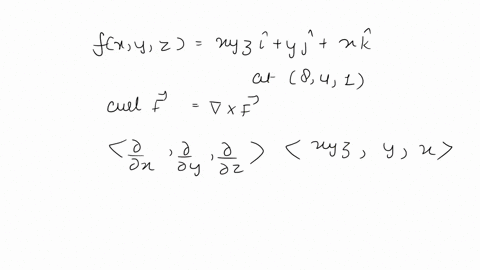 f(x, y, z) = xyz î + y ĵ + x k̂
at (8, 4, 1)
curl F⃗ = ∇ × F⃗
< ∂/∂x , ∂/∂y , ∂/∂z > < xyz , y , x >